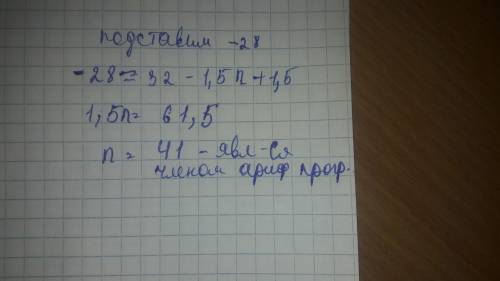 подставим -28
-28 = 32 - 1,5n + 1,5
1,5n = 61,5
n = 41 - явл-ся
членом ариф прогр.